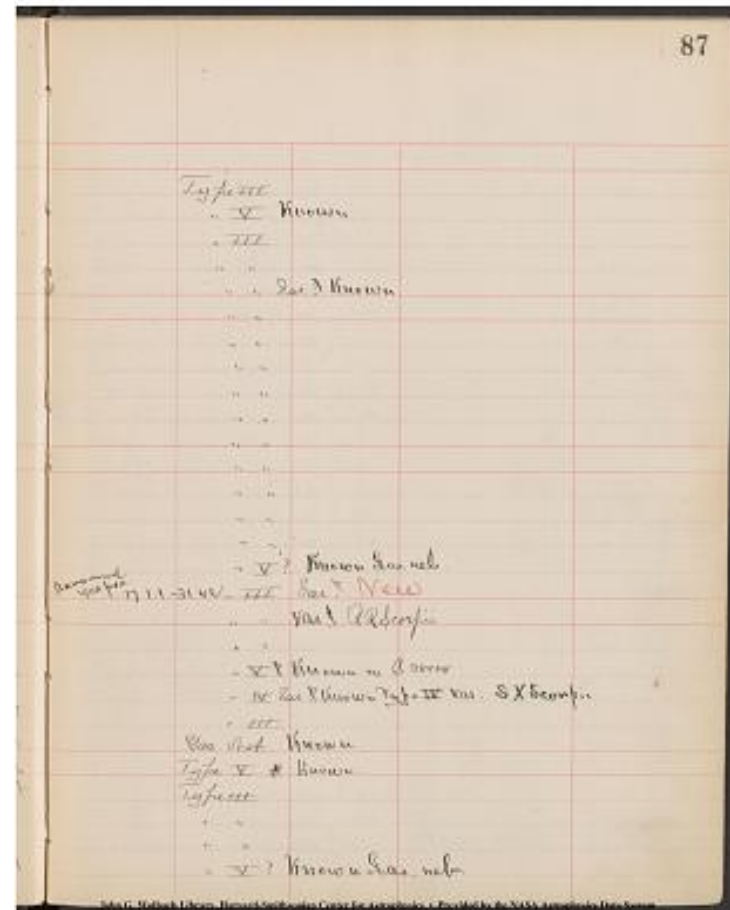 87
Type III
" V Known
" III
" "
" " Var ? Known
" "
" "
" "
" "
" "
" "
" "
" "
" "
" "
" V ? Known Gas. neb
17 1.1 -31 48 - III Var ? New
" " Var ? RR Scorpii
" "
" V ? Known
" IV Var ? Known Type IV Var. SX Scorpii
" III
Known
Type V * Known
Type III
" "
" "
" V ? Known Gas. neb
John G. Wolbach Library, Harvard-Smithsonian Center for Astrophysics • Provided by the NASA Astrophysics Data System